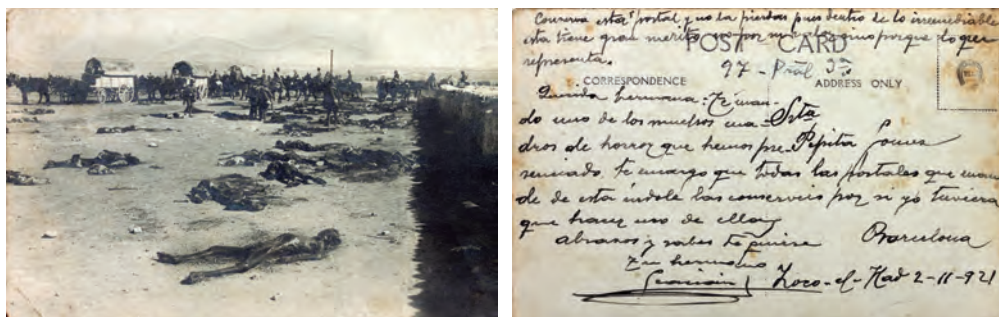 Conserva esta postal y no la pierdas pues dentro de lo irremediable
esta tiene gran merito, no por mi valor sino porque lo que
representa.
POST CARD
97 - Pral 2ª
CORRESPONDENCE
ADDRESS ONLY
Querida hermana: Te man-
do uno de los muchos cua-
Srta
dros de horror que hemos pre-
Pepita Gomez
senciado, te encargo que todas las postales que man
de de esta indole las conserveis por si yo tuviera
que hacer uso de ellas
abrazos y sabes te quiere
Barcelona
Tu hermano
Zoco-el-Had 2-11-921